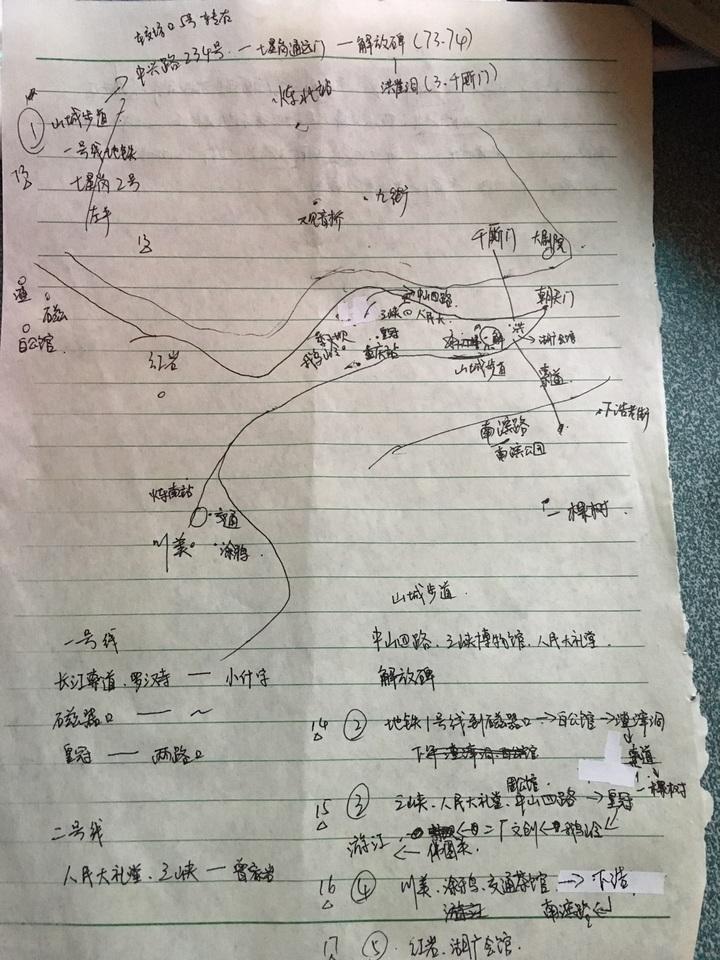 中兴路234号 — 七星岗通远门 — 解放碑(73.74)
洪崖洞(3.千厮门)
① 山城步道
一号线地铁
七星岗2号
左手
13
火车北站
九街
观音桥
千厮门
大剧院
朝天门
中山四路
三峡 人民大
渣
石磁
白公馆
红岩
李子坝
鹅岭
皇冠
重庆站
解
洪
湖广会馆
山城步道
索道
下浩老街
南滨路
南滨公园
一棵树
火车南站
交通
川美
涂鸦
山城步道
一号线
中山四路、三峡博物馆、人民大礼堂
长江索道、罗汉寺 — 小什字
解放碑
石磁器口 — ~
14 ② 地铁1号线到磁器口→白公馆→渣滓洞
皇冠 — 两路口
索道
一棵树
周公馆
15 ③ 三峡、人民大礼堂、中山四路→皇冠
二厂文创←鹅岭
游江
二号线
人民大礼堂、三峡 — 曾家岩
16 ④ 川美、涂鸦、交通茶馆→下浩
游江
南滨路
17 ⑤ 红岩、湖广会馆